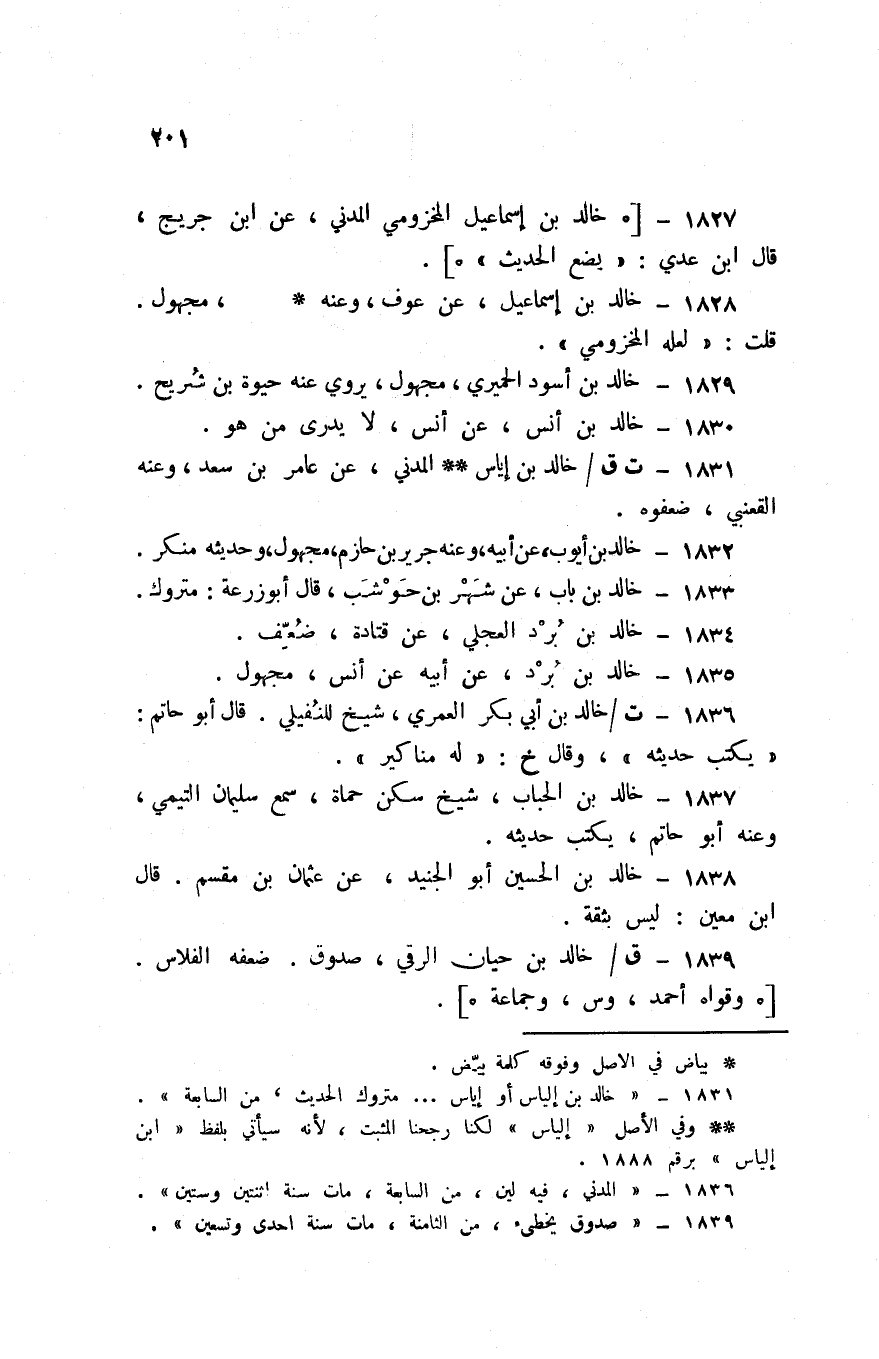 ٢٠١
١٨٢٧ – [ه خالد بن إسماعيل المخزومي المدني ، عن ابن جريج ،
قال ابن عدي : « يضع الحديث » ه] .
١٨٢٨ – خالد بن إسماعيل ، عن عوف ، وعنه * ، مجهول .
قلت : « لعله المخزومي » .
١٨٢٩ – خالد بن أسود الحميري ، مجهول ، يروي عنه حيوة بن شُريح .
١٨٣٠ – خالد بن أنس ، عن أنس ، لا يدرى من هو .
١٨٣١ – ت ق / خالد بن إياس ** المدني ، عن عامر بن سعد ، وعنه
القعنبي ، ضعفوه .
١٨٣٢ – خالد بن أيوب ، عن أبيه ، وعنه جرير بن حازم ، مجهول ، وحديثه منكر .
١٨٣٣ – خالد بن باب ، عن شَهْر بن حَوْشَب ، قال أبو زرعة : متروك .
١٨٣٤ – خالد بن بُرْد العجلي ، عن قتادة ، ضُعِّف .
١٨٣٥ – خالد بن بُرْد ، عن أبيه عن أنس ، مجهول .
١٨٣٦ – ت / خالد بن أبي بكر العمري ، شيخ للنُفيلي . قال أبو حاتم :
« يكتب حديثه » ، وقال خ : « له مناكير » .
١٨٣٧ – خالد بن الحباب ، شيخ سكن حماة ، سمع سليمان التيمي ،
وعنه أبو حاتم ، يكتب حديثه .
١٨٣٨ – خالد بن الحسين أبو الجنيد ، عن عثمان بن مقسم . قال
ابن معين : ليس بثقة .
١٨٣٩ – ق / خالد بن حيان الرقي ، صدوق . ضعفه الفلاس .
[ه وقواه أحمد ، وس ، وجماعة ه] .
* بياض في الاصل وفوقه كلمة بيّض .
١٨٣١ – « خالد بن إلياس أو إياس ... متروك الحديث ، من السابعة » .
** وفي الأصل « إلياس » لكنا رجحنا المثبت ، لأنه سيأتي بلفظ « ابن
إلياس » برقم ١٨٨٨ .
١٨٣٦ – « المدني ، فيه لين ، من السابعة ، مات سنة اثنتين وستين » .
١٨٣٩ – « صدوق يخطىء ، من الثامنة ، مات سنة احدى وتسعين » .